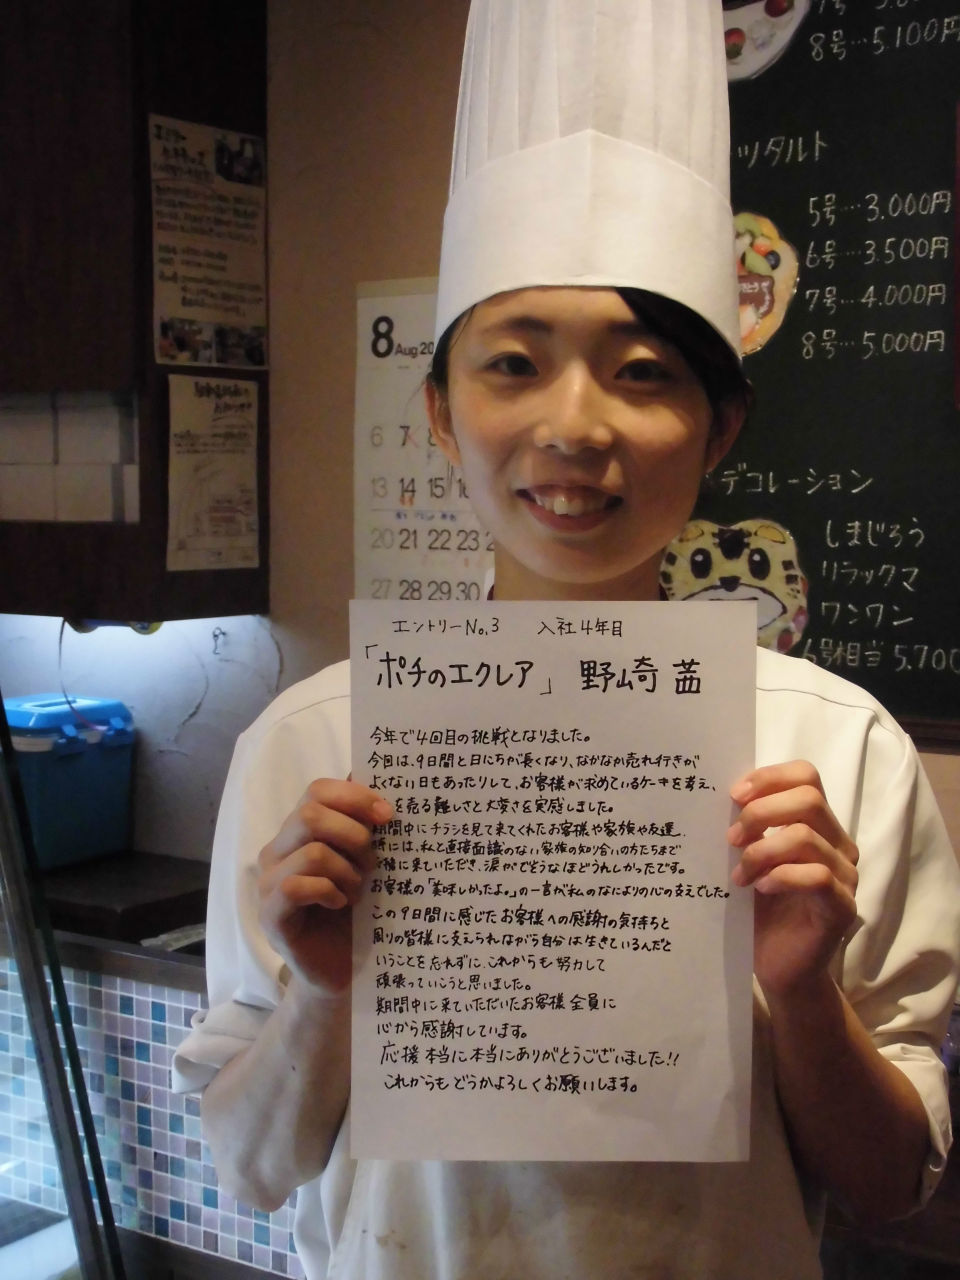 8号…5.100円
ツタルト
5号…3.000円
6号…3.500円
7号…4.000円
8号…5.000円
デコレーション
しまじろう
リラックマ
ワンワン
6号相当 5.700
8 Aug 20
6 7 8
13 14 15 16
20 21 22 23
27 28 29 30
エントリーNo.3 入社4年目
「ポチのエクレア」 野崎 茜
今年で4回目の挑戦となりました。
今回は、9日間と日にちが長くなり、なかなか売れ行きが
よくない日もあったりして、お客様が求めているケーキを考え、
を売る難しさと大変さを実感しました。
期間中にチラシを見て来てくれたお客様や家族や友達、
時には、私と直接面識のない家族の知り合いの方たちまで
に来ていただき、涙がでそうなほどうれしかったです。
お客様の「美味しかったよ。」の一言が私のなによりの心の支えでした。
この9日間に感じたお客様への感謝の気持ちと
周りの皆様に支えられながら自分は生きているんだと
いうことを忘れずに、これからも努力して
頑張っていこうと思いました。
期間中に来ていただいたお客様全員に
心から感謝しています。
応援本当に本当にありがとうございました!!
これからもどうかよろしくお願いします。